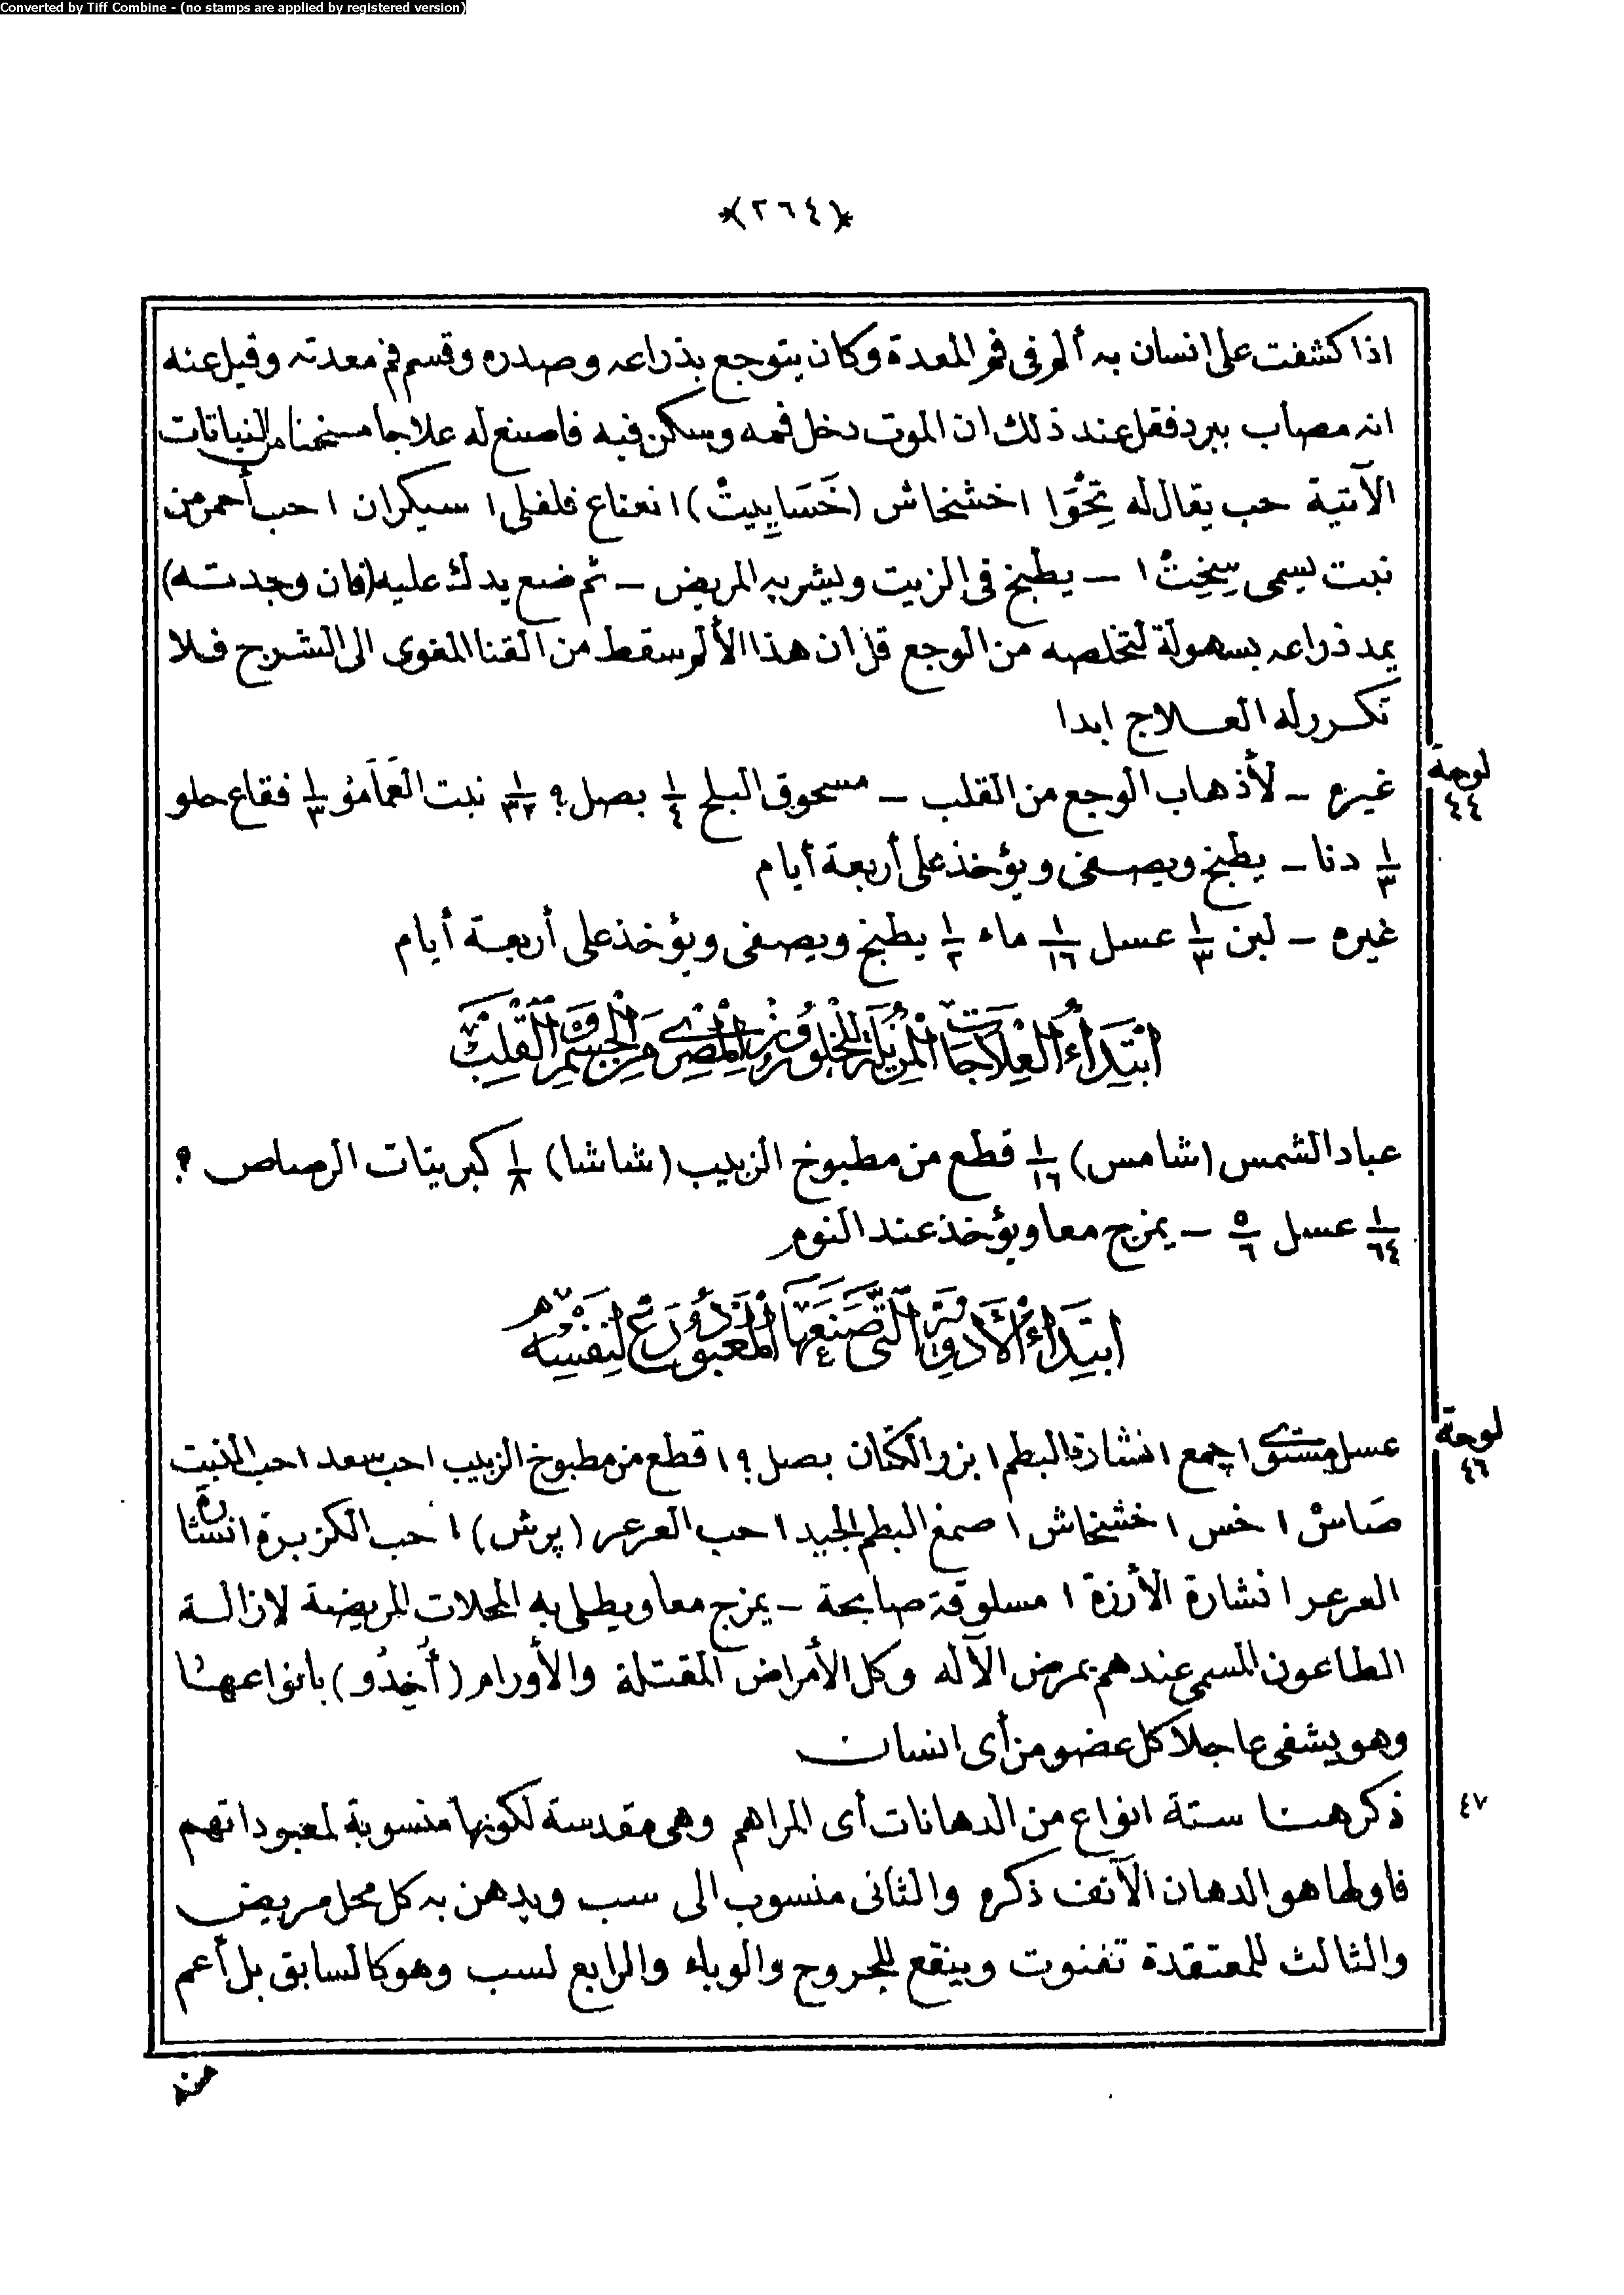 Converted by Tiff Combine - (no stamps are applied by registered version)
*(٢٦٤)*
اذا كشفت على انسان به ألم فى فم المعدة وكان يتوجع بذراعه وصدره وقسم فم معدته وقيل عنه
انه مصاب ببرد فقل عند ذلك ان الموت دخل فمه وسكن فيه فاصنع له علاجا مسخنا من النباتات
الآتية حب يقال له تِحُوَا ١ خشخاش (خَسَايِيتْ) ١ نعناع فلفلى ١ سيكران ١ حب أحمر من
نبت يسمى سِخِتْ ١ — يطبخ فى الزيت ويشربه المريض — ثم ضع يدك عليه (فان وجدته)
يمد ذراعه بسهولة لتخلصه من الوجع قل ان هذا الألم سقط من القنا المغوى الى الشرج فلا
تكرر له العلاج ابدا
لوحة ٤٤
غيره — لأذهاب الوجع من القلب — مسحوق البلح ١/٤ بصل ؟ ١/٣٢ نبت العَمَامُو ١/٣ فقاع حلو
١/٣ دنا — يطبخ ويصفى ويؤخذ على أربعة أيام
غيره — لبن ١/٣ عسل ١/١٦ ماء ١/٢ يطبخ ويصفى ويؤخذ على أربعة أيام
ابْتِدَاءُ العِلَاجَاتِ المُزِيلَة من الجِسْمِ القَلْب
عباد الشمس (شامس) ١/١٦ قطع من مطبوخ الزبيب (شاشا) ١/٨ كبريتات الرصاص ؟
١/٦٤ عسل ٥/٦ — يمزج معا ويؤخذ عند النوم
ابتِدَاءُ الأَدْوِيَةِ الَّتى صَنَعَهَا المَعْبُود رَع لِنَفْسِه
لوحة ٤٦
عسل ١ جمع ١ نشارة البطم ١ بزر الكتان بصل ؟ ١ قطع من مطبوخ الزبيب ١ حب سعد ١ حب النبت
صَاسْ ١ خس ١ خشخاش ١ صمغ البطم الجيد ١ حب العرعر (پرش) ١ حب الكزبرة ١ نشارة
العرعر ١ نشارة الأرزة ١ مسلوقة صابحة — يمزج معا ويطلى به المحلات المريضة لازالة
الطاعون المسمى عندهم بمرض الآله وكل الأمراض المقتلة والأورام (أُخِدُو) بانواعها
وهو يشفى عاجلا كل عضو من أى انسان
٤٧
ذكر هنا ستة انواع من الدهانات أى المراهم وهى مقدسة لكونها منسوبة لمعبوداتهم
فاولها هو الدهان الآنف ذكره والثانى منسوب الى سب ويدهن به كل محل مريض
والثالث للمعتقدة تفنوت وينقع للجروح والوباء والرابع لسب وهو كالسابق بل أعم
منه